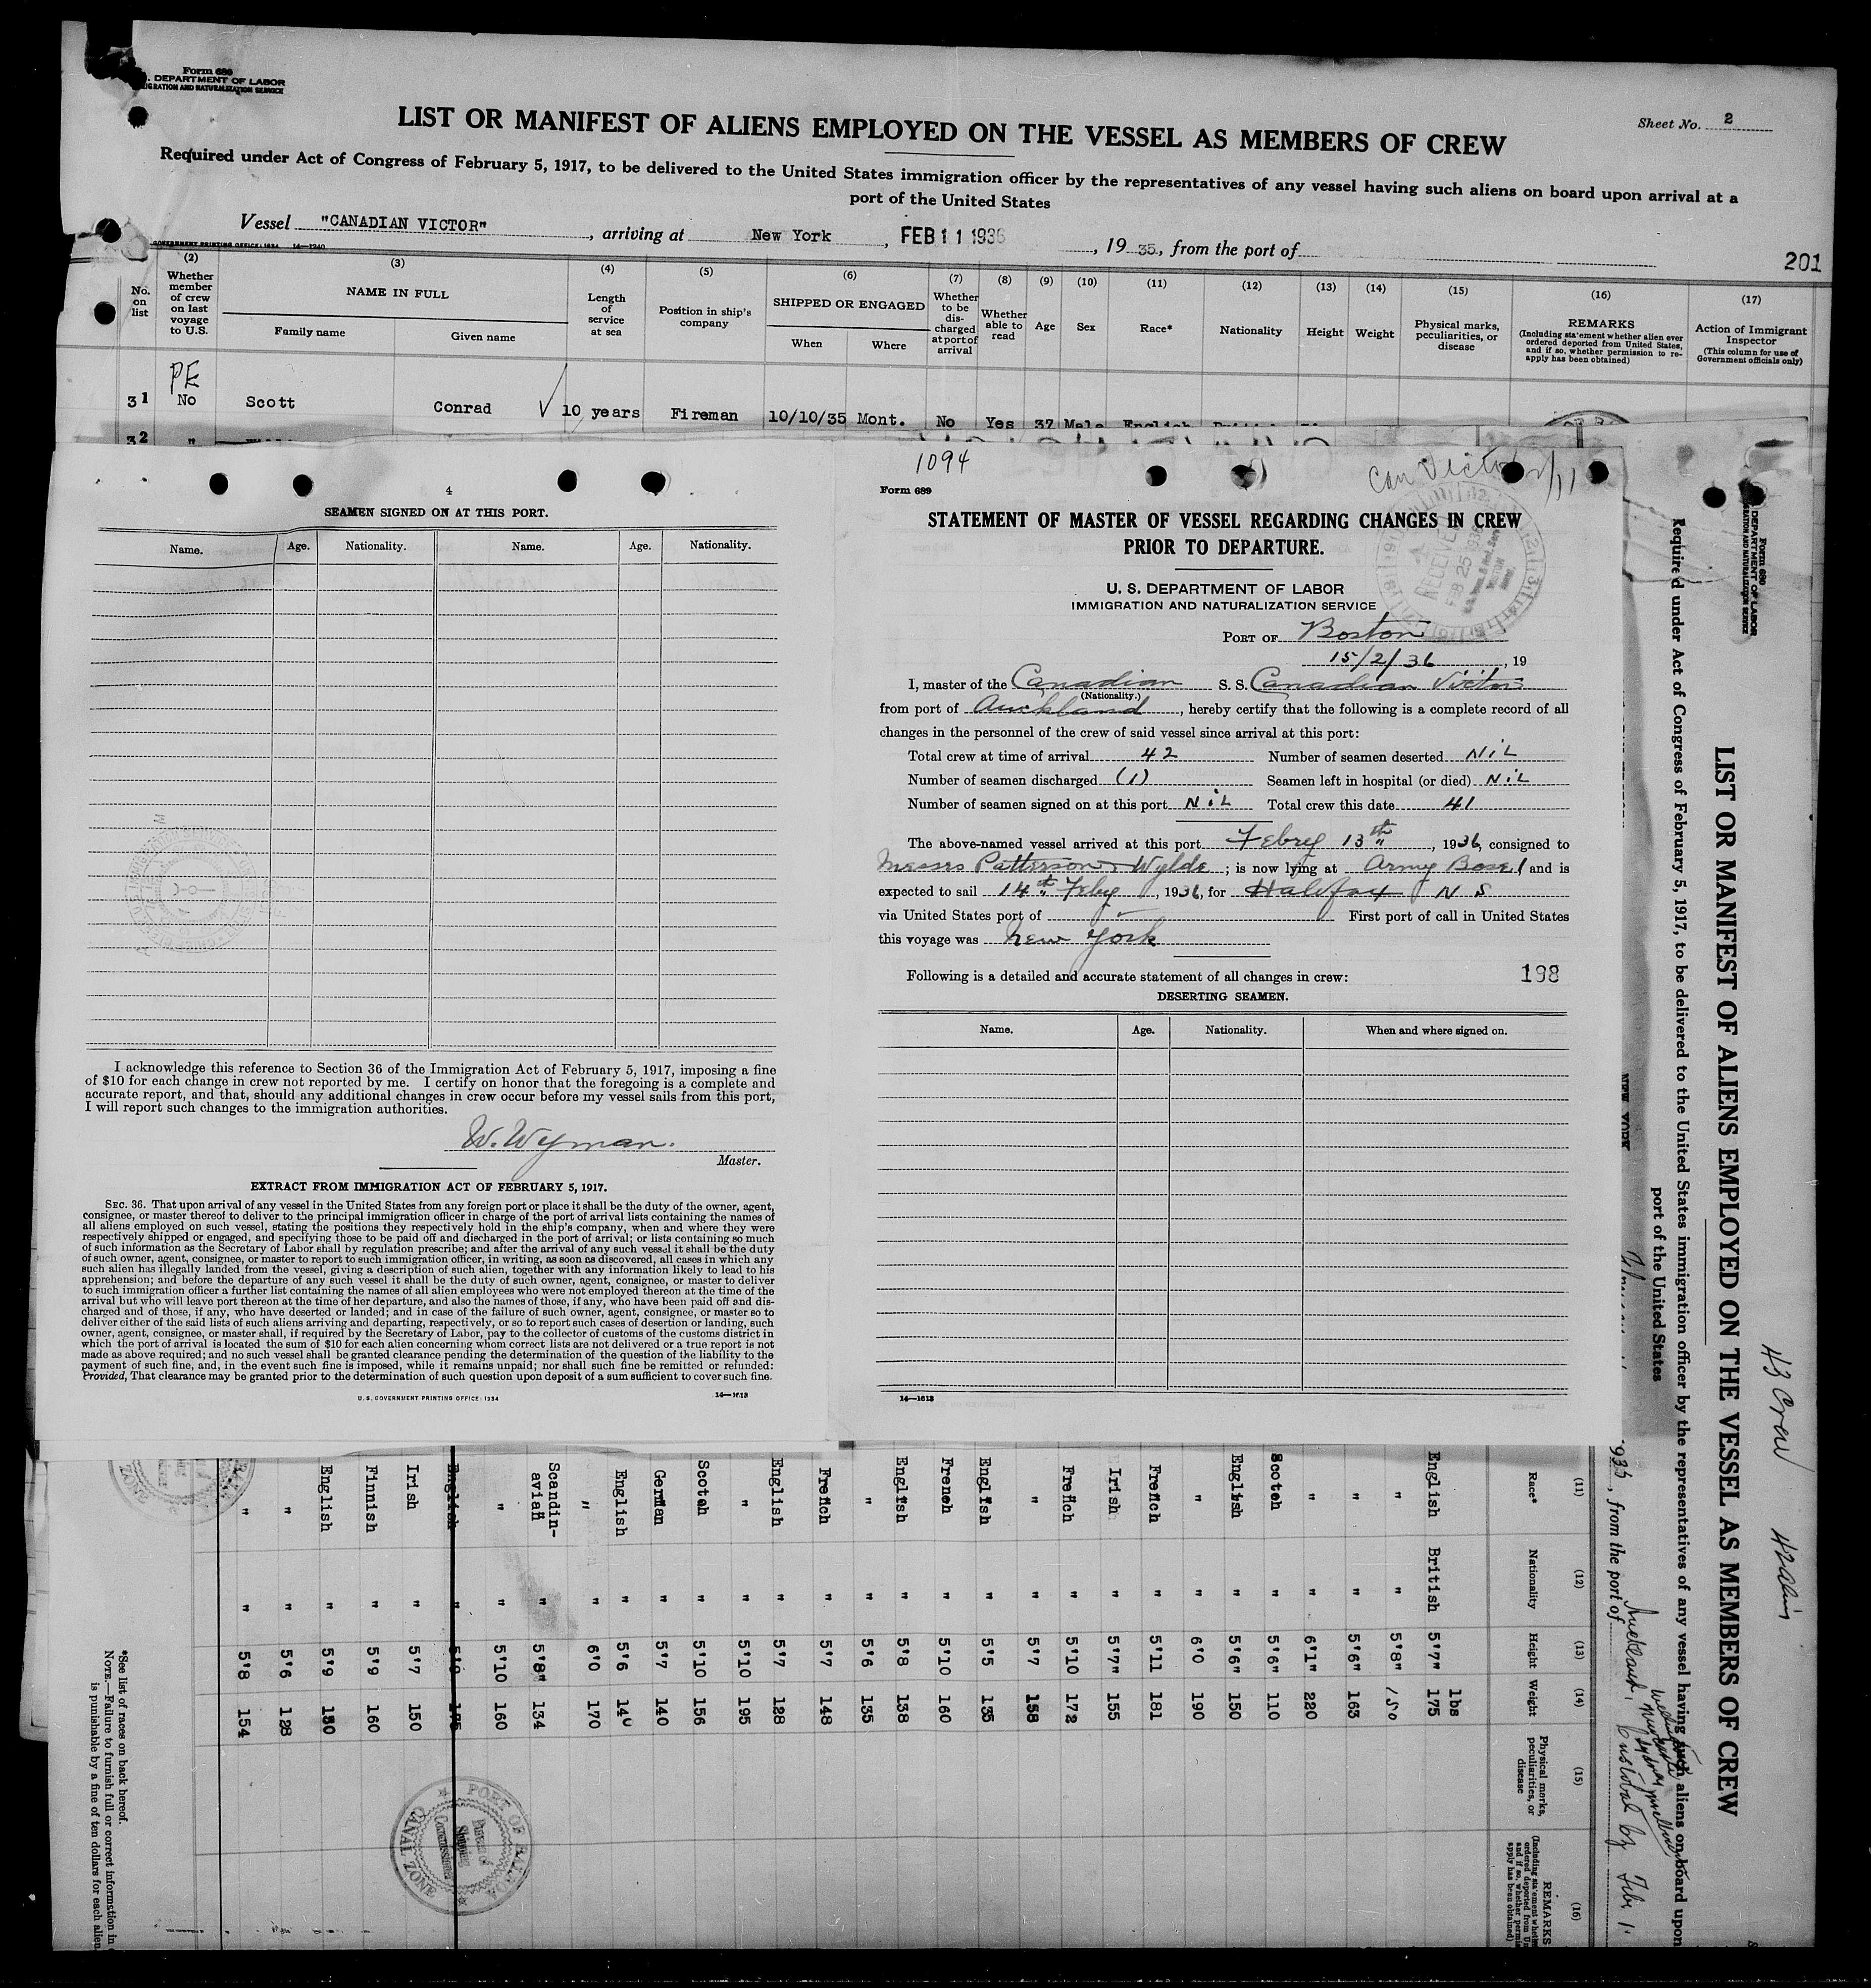 Form 689
. DEPARTMENT OF LABOR
IGRATION AND NATURALIZATION SERVICE
LIST OR MANIFEST OF ALIENS EMPLOYED ON THE VESSEL AS MEMBERS OF CREW
Sheet No. 2
Required under Act of Congress of February 5, 1917, to be delivered to the United States immigration officer by the representatives of any vessel having such aliens on board upon arrival at a
port of the United States
Vessel "CANADIAN VICTOR", arriving at New York, FEB 11 1936, 1935, from the port of
GOVERNMENT PRINTING OFFICE: 1934 14-1240
201
No. on list
(2) Whether member of crew on last voyage to U.S.
(3) NAME IN FULL Family name Given name
(4) Length of service at sea
(5) Position in ship's company
(6) SHIPPED OR ENGAGED When Where
(7) Whether to be discharged at port of arrival
(8) Whether able to read
(9) Age
(10) Sex
(11) Race*
(12) Nationality
(13) Height
(14) Weight
(15) Physical marks, peculiarities, or disease
(16) REMARKS (Including statement whether alien ever ordered deported from United States, and if so, whether permission to re-apply has been obtained)
(17) Action of Immigrant Inspector (This column for use of Government officials only)
PE
31 No Scott Conrad √ 10 years Fireman 10/10/35 Mont. No Yes 37 Male English
32 "
4
SEAMEN SIGNED ON AT THIS PORT.
Name. Age. Nationality. Name. Age. Nationality.
I acknowledge this reference to Section 36 of the Immigration Act of February 5, 1917, imposing a fine
of $10 for each change in crew not reported by me. I certify on honor that the foregoing is a complete and
accurate report, and that, should any additional changes in crew occur before my vessel sails from this port,
I will report such changes to the immigration authorities.
W. Wyman.
Master.
EXTRACT FROM IMMIGRATION ACT OF FEBRUARY 5, 1917.
SEC. 36. That upon arrival of any vessel in the United States from any foreign port or place it shall be the duty of the owner, agent,
consignee, or master thereof to deliver to the principal immigration officer in charge of the port of arrival lists containing the names of
all aliens employed on such vessel, stating the positions they respectively hold in the ship's company, when and where they were
respectively shipped or engaged, and specifying those to be paid off and discharged in the port of arrival; or lists containing so much
of such information as the Secretary of Labor shall by regulation prescribe; and after the arrival of any such vessel it shall be the duty
of such owner, agent, consignee, or master to report to such immigration officer, in writing, as soon as discovered, all cases in which any
such alien has illegally landed from the vessel, giving a description of such alien, together with any information likely to lead to his
apprehension; and before the departure of any such vessel it shall be the duty of such owner, agent, consignee, or master to deliver
to such immigration officer a further list containing the names of all alien employees who were not employed thereon at the time of the
arrival but who will leave port thereon at the time of her departure, and also the names of those, if any, who have been paid off and dis-
charged and of those, if any, who have deserted or landed; and in case of the failure of such owner, agent, consignee, or master so to
deliver either of the said lists of such aliens arriving and departing, respectively, or so to report such cases of desertion or landing, such
owner, agent, consignee, or master shall, if required by the Secretary of Labor, pay to the collector of customs of the customs district in
which the port of arrival is located the sum of $10 for each alien concerning whom correct lists are not delivered or a true report is not
made as above required; and no such vessel shall be granted clearance pending the determination of the question of the liability to the
payment of such fine, and, in the event such fine is imposed, while it remains unpaid; nor shall such fine be remitted or refunded:
Provided, That clearance may be granted prior to the determination of such question upon deposit of a sum sufficient to cover such fine.
U. S. GOVERNMENT PRINTING OFFICE: 1934
14-1613
1094
Can Victor 2/11
Form 689
STATEMENT OF MASTER OF VESSEL REGARDING CHANGES IN CREW
PRIOR TO DEPARTURE.
RECEIVED
FEB 25 1936
U. S. DEPARTMENT OF LABOR
IMMIGRATION AND NATURALIZATION SERVICE
PORT OF Boston
15/2/36, 19
I, master of the Canadian S. S. Canadian Victor
(Nationality.)
from port of Auckland, hereby certify that the following is a complete record of all
changes in the personnel of the crew of said vessel since arrival at this port:
Total crew at time of arrival 42 Number of seamen deserted NiL
Number of seamen discharged (1) Seamen left in hospital (or died) NiL
Number of seamen signed on at this port NiL Total crew this date 41
The above-named vessel arrived at this port Febry 13th, 1936, consigned to
Messrs Patterson & Wylde; is now lying at Army Base 1 and is
expected to sail 14th Feby, 1936, for Halifax N S
via United States port of - First port of call in United States
this voyage was New York
Following is a detailed and accurate statement of all changes in crew: 198
DESERTING SEAMEN.
Name. Age. Nationality. When and where signed on.
14-1613
Form 689
DEPARTMENT OF LABOR
IGRATION AND NATURALIZATION SERVICE
43 Crew
42 aliens
LIST OR MANIFEST OF ALIENS EMPLOYED ON THE VESSEL AS MEMBERS OF CREW
Required under Act of Congress of February 5, 1917, to be delivered to the United States immigration officer by the representatives of any vessel having such aliens on board upon
port of the United States
NEW YORK
1935, from the port of Auckland,
(11) Race*
(12) Nationality
(13) Height
(14) Weight
(15) Physical marks, peculiarities, or disease
(16) REMARKS
English British 5'7" 175 lbs
" " 5'8" 150
" " 5'6" 163
" " 6'1" 220
Scotch " 5'6" 110
English " 5'6" 150
" " 6'0 190
French " 5'11 181
Irish " 5'7" 155
French " 5'10 172
" " 5'7 158
English " 5'5 135
French " 5'10 160
English " 5'8 138
" " 5'6 135
French " 5'7 148
English " 5'7 128
" " 5'10 195
Scotch " 5'10 156
German " 5'7 140
English " 5'6 140
" " 6'0 170
Scandin-avian " 5'8" 134
" " 5'10 160
English " 5'9 175
Irish " 5'7 150
Finnish " 5'9 160
English " 5'9 150
" " 5'6 128
" " 5'8 154
PORT OF BALBOA
CANAL ZONE
*See list of races on back hereof.
NOTE.—Failure to furnish full or correct information in
is punishable by a fine of ten dollars for each alien